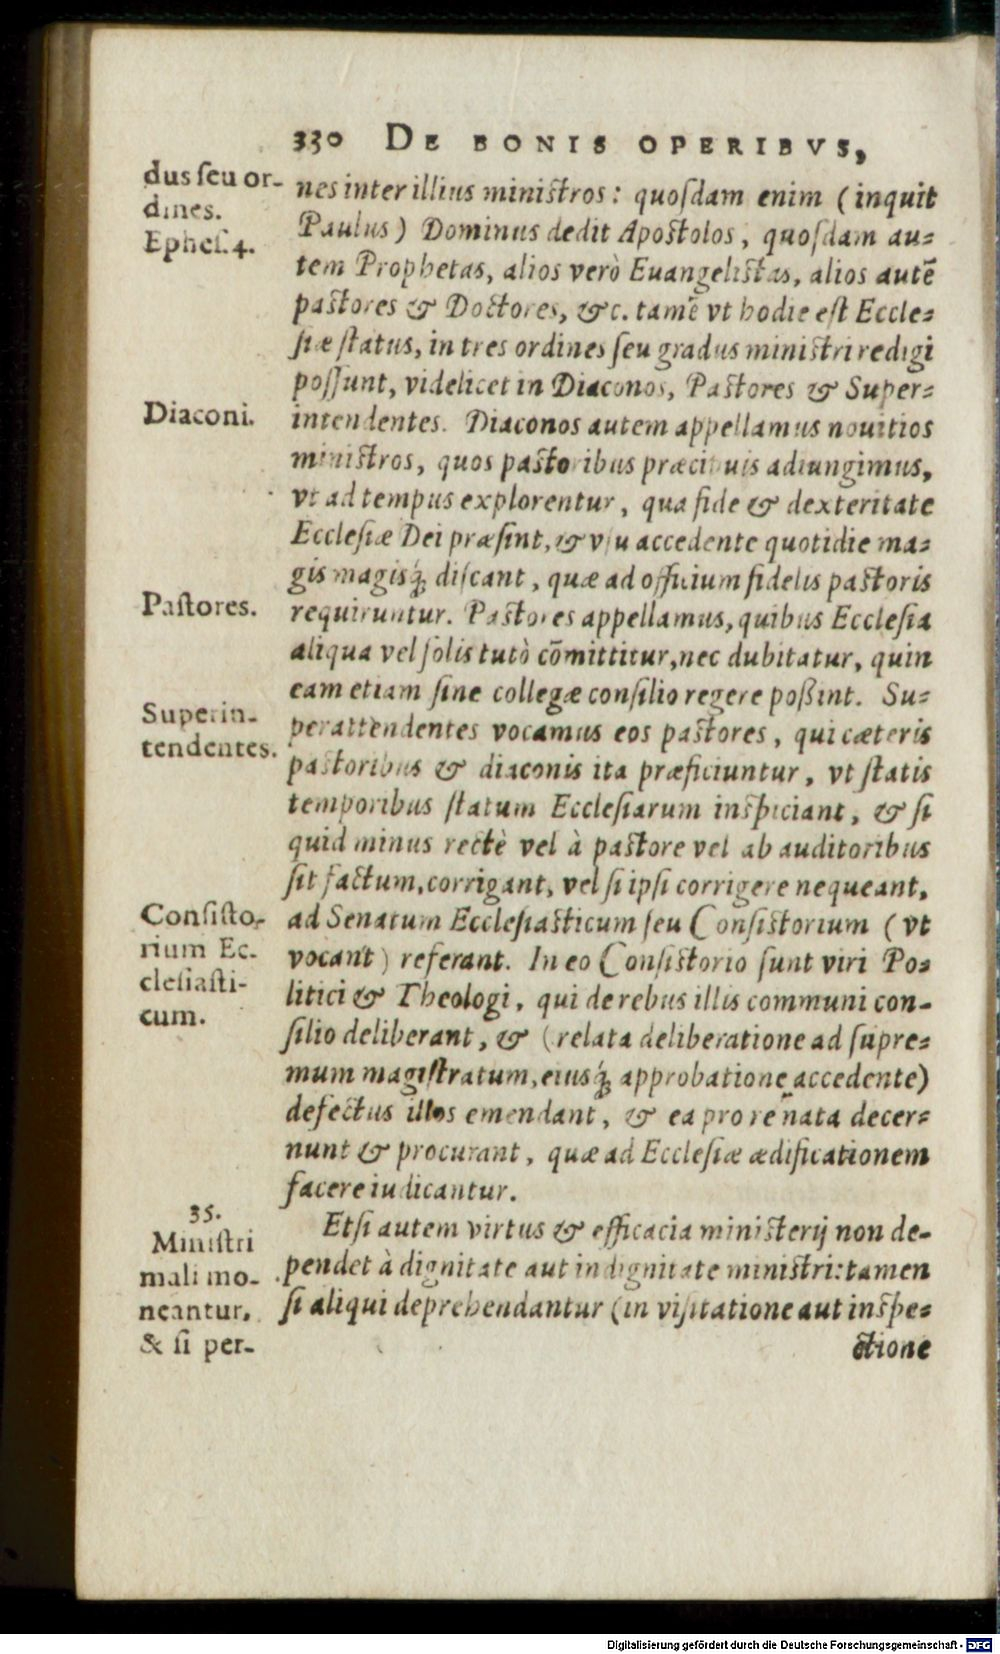 330 DE BONIS OPERIBVS,
dus ſeu or-
dines.
Epheſ. 4.
nes inter illius miniſtros: quoſdam enim (inquit
Paulus) Dominus dedit Apoſtolos, quoſdam au-
tem Prophetas, alios verò Euangeliſtas, alios autē
paſtores & Doctores, &c. tamē vt hodie eſt Eccle-
ſiæ ſtatus, in tres ordines ſeu gradus miniſtri redigi
poſſunt, videlicet in Diaconos, Paſtores & Super-
Diaconi.
intendentes. Diaconos autem appellamus nouitios
miniſtros, quos paſtoribus præcipuis adiungimus,
vt ad tempus explorentur, qua fide & dexteritate
Eccleſiæ Dei præſint, & vſu accedente quotidie ma-
gis magisq́; diſcant, quæ ad officium fidelis paſtoris
Paſtores.
requiruntur. Paſtores appellamus, quibus Eccleſia
aliqua vel ſolis tutò cōmittitur, nec dubitatur, quin
eam etiam ſine collegæ conſilio regere poßint. Su-
Superin-
tendentes.
perattendentes vocamus eos paſtores, qui cæteris
paſtoribus & diaconis ita præficiuntur, vt ſtatis
temporibus ſtatum Eccleſiarum inſpiciant, & ſi
quid minus rectè vel à paſtore vel ab auditoribus
ſit factum, corrigant, vel ſi ipſi corrigere nequeant,
Conſiſto-
rium Ec-
cleſiaſti-
cum.
ad Senatum Eccleſiaſticum ſeu Conſiſtorium (vt
vocant) referant. In eo Conſiſtorio ſunt viri Po-
litici & Theologi, qui de rebus illis communi con-
ſilio deliberant, & (relata deliberatione ad ſupre-
mum magiſtratum, eiusq́; approbatione accedente)
defectus illos emendant, & ea pro re nata decer-
nunt & procurant, quæ ad Eccleſiæ ædificationem
facere iudicantur.
35.
Miniſtri
mali mo-
neantur,
& ſi per-
Etſi autem virtus & efficacia miniſterij non de-
pendet à dignitate aut indignitate miniſtri: tamen
ſi aliqui deprehendantur (in viſitatione aut inſpe-
ctione
Digitalisierung gefördert durch die Deutsche Forschungsgemeinschaft - DFG